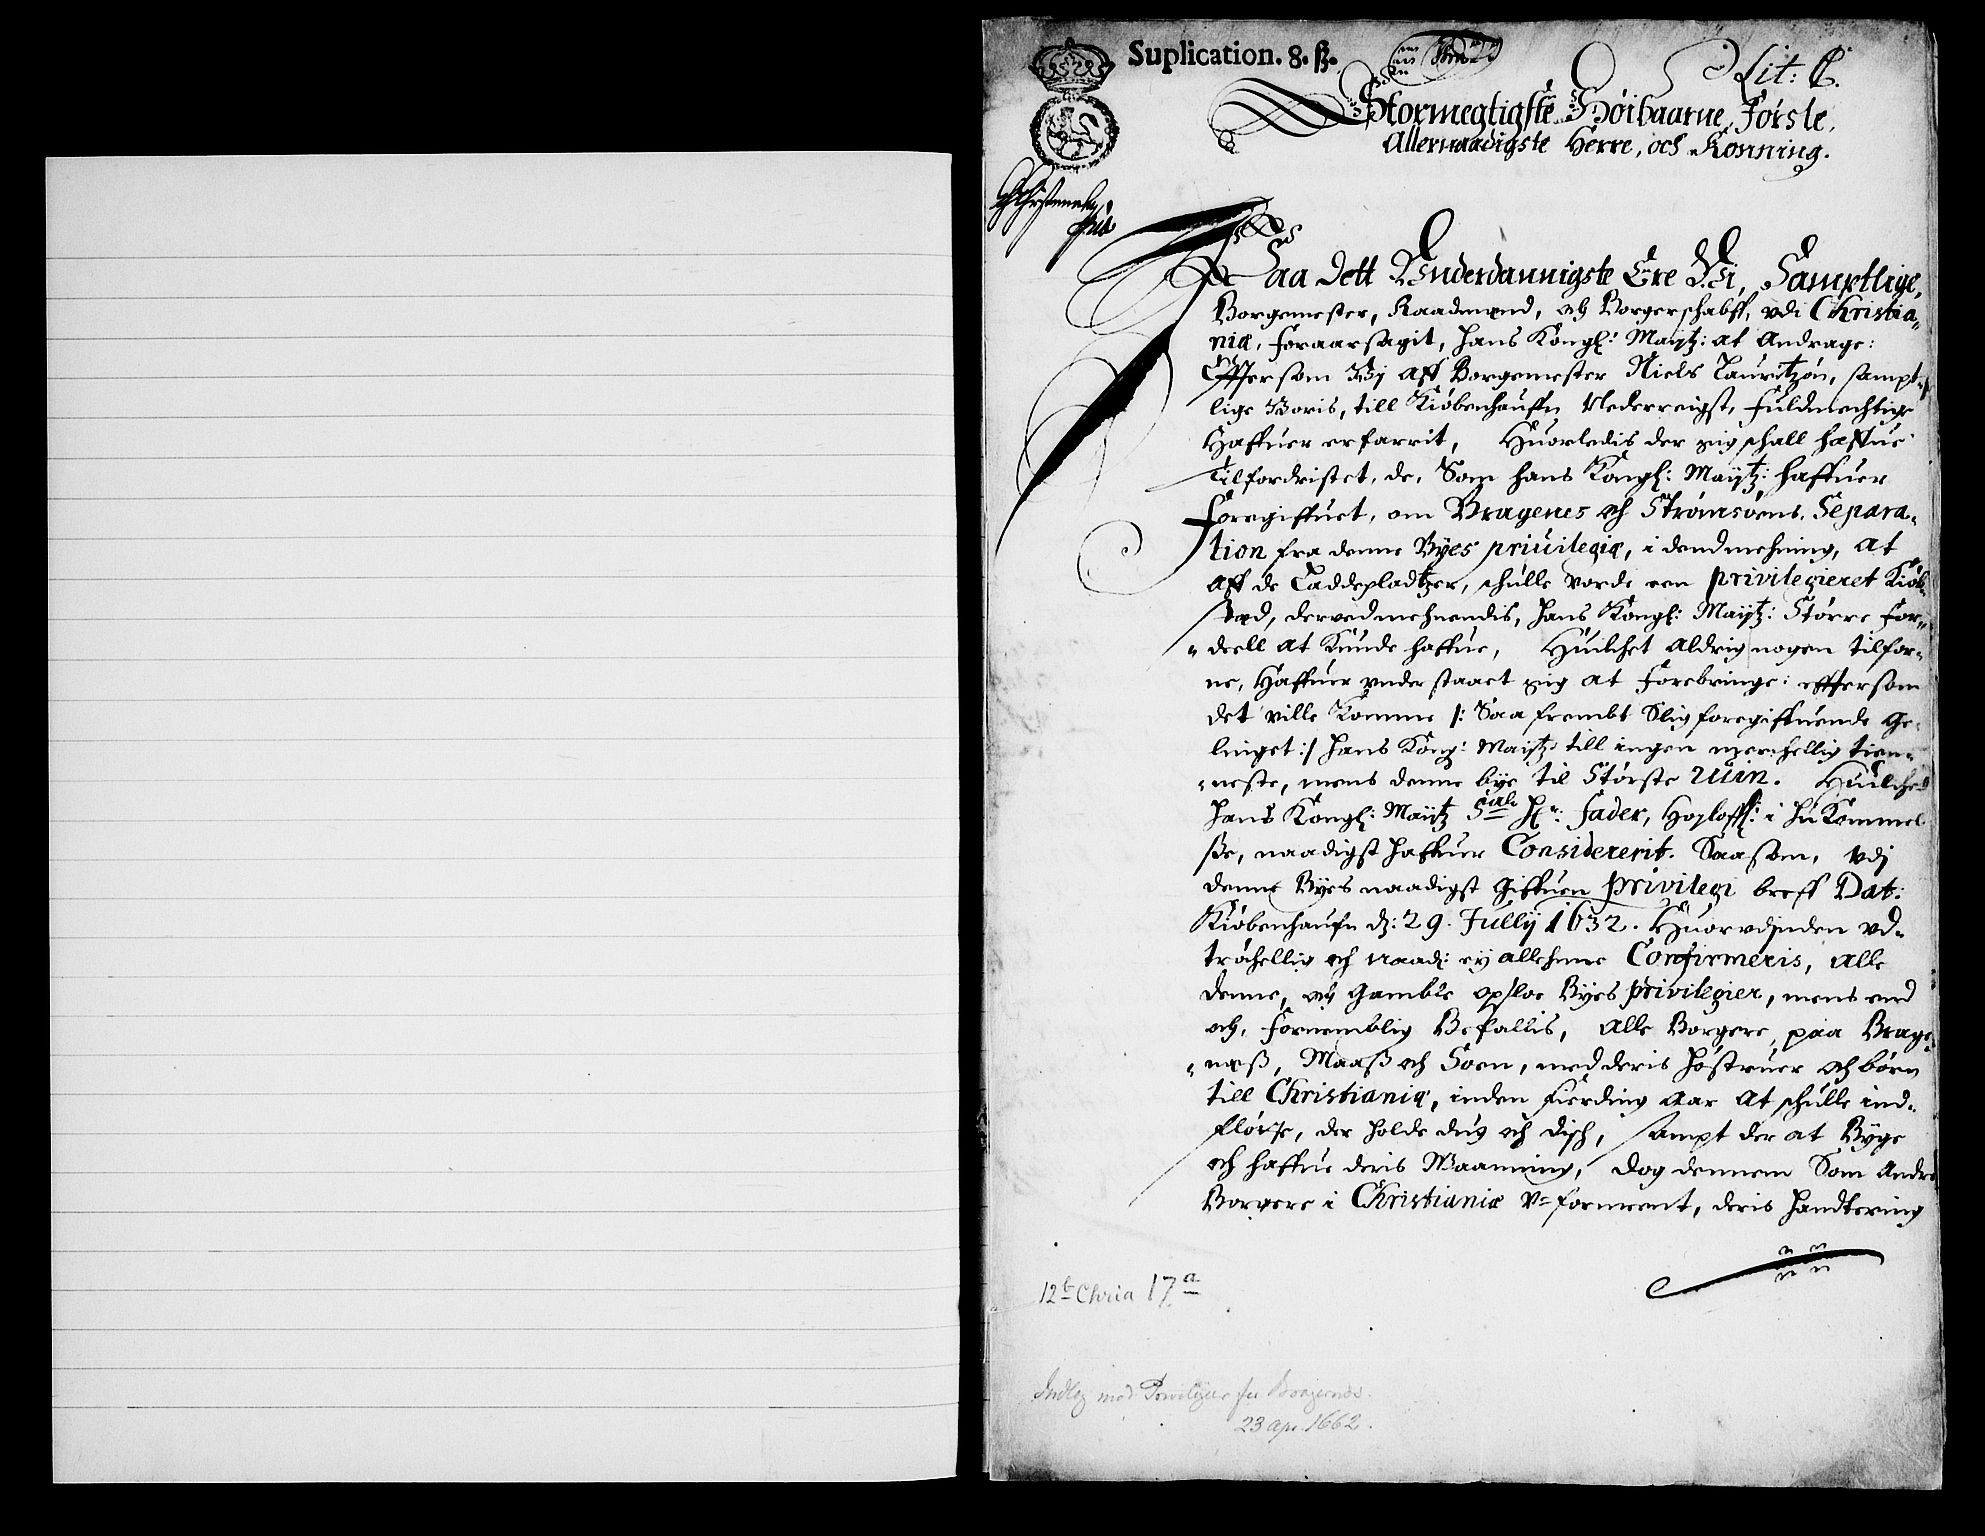 Suplication. 8. ß.
Lit: C.
Stormegtigste Höibaarne Förste,
Allernaadigste Herre, och Konning.
Paa dett Vnderdannigste Ere Wi, Samptlige,
Borgemester, Raadmænd, och Borgerschabff, vdi Christia-
niæ, foraarsagit, hans Kongl: Maytz: at Andrage:
Effter som Wij aff Borgemester Niels Lauritzøn, sampt-
lige Woris, till Kiöbenhauffn Nederreigst, fuldmechtige
Haffuer erfarrit, Huorledis der sig schall haffue
Tilfordristet, de, Som hans Kongl: Maytz: haffuer
foregiffuet, om Bragenes och Strömsöens, Separa-
tion fra denne Byes priuilegiæ, i dend mehning, at
aff de Laddepladtzer, schulle vorde een privilegieret Kiöb-
stad, derved mehnendis, hans Kongl: Maytz: Större for-
deell at kunde haffue, Huilchet aldrig nogen tilfor-
ne, haffuer vnderstaaet sig at forebringe: effter som
det ville komme /: Saa frembt Slig foregiffuende ge-
linget :/ hans Kong: Maytz: till ingen merchellig tien-
neste, mens denne bye til Största ruin. Huilched
hans Kongl: Maytz Sal: Hr: fader, Hoyloffl: i hukommel-
ße, naadigst haffuer Considererit. Saasom, vdj
denne Byes naadigst giffuen privilegi breff Dat:
Kiöbenhaufn d: 29. Jullij 1632. Huorvdjnden vd-
tröchellig och naad: ey allehene Confirmeris, alle
denne, och gamble opsloe Byes privilegier, mens end
och, fornemblig Befallis, alle Borgere, paa Brage-
næß, Maaß och Soen, med deris höstruer och börn
till Christianiæ, inden fierding aar at schulle ind-
flötte, der holde dug och disch, sampt der at Byge
och haffue deris Waanning, dog dennem Som andre
Borgere i Christianiæ V-formeent, deris handtering
12b Chria 17a
Indlæg med Privilegier for Bragernes.
23 apr. 1662.